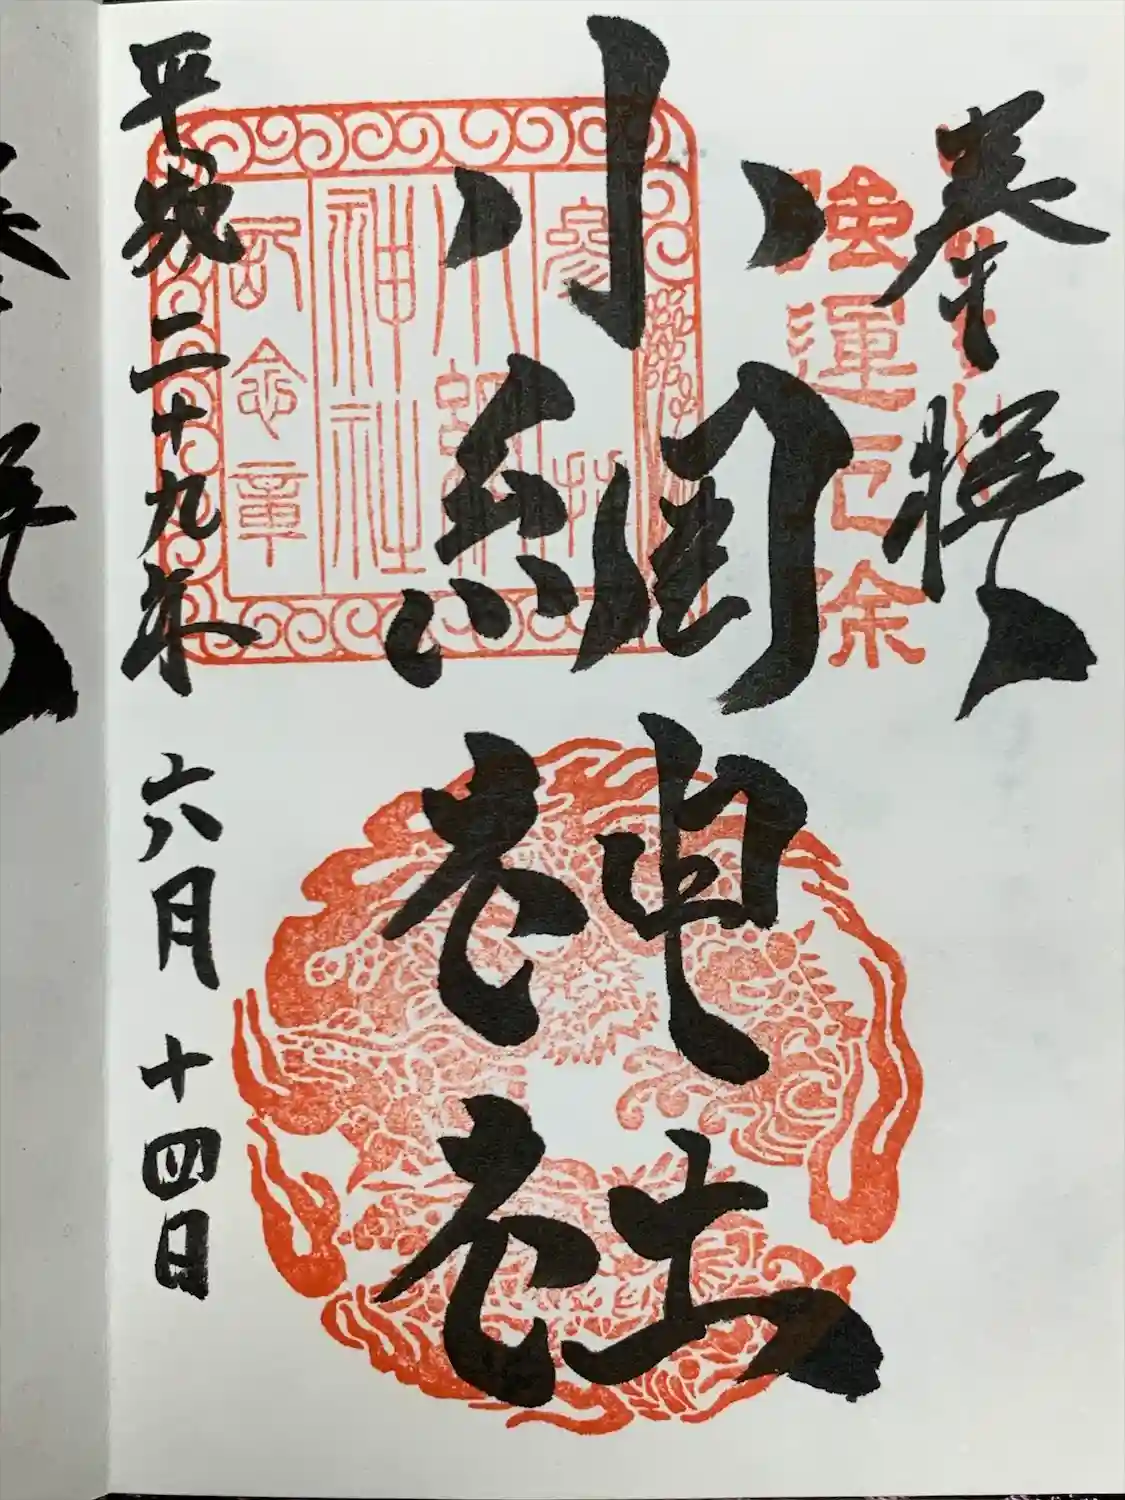 奉拝
強運厄除
小網神社
参拝
小網神社
記念章
平成二十九年 六月 十四日